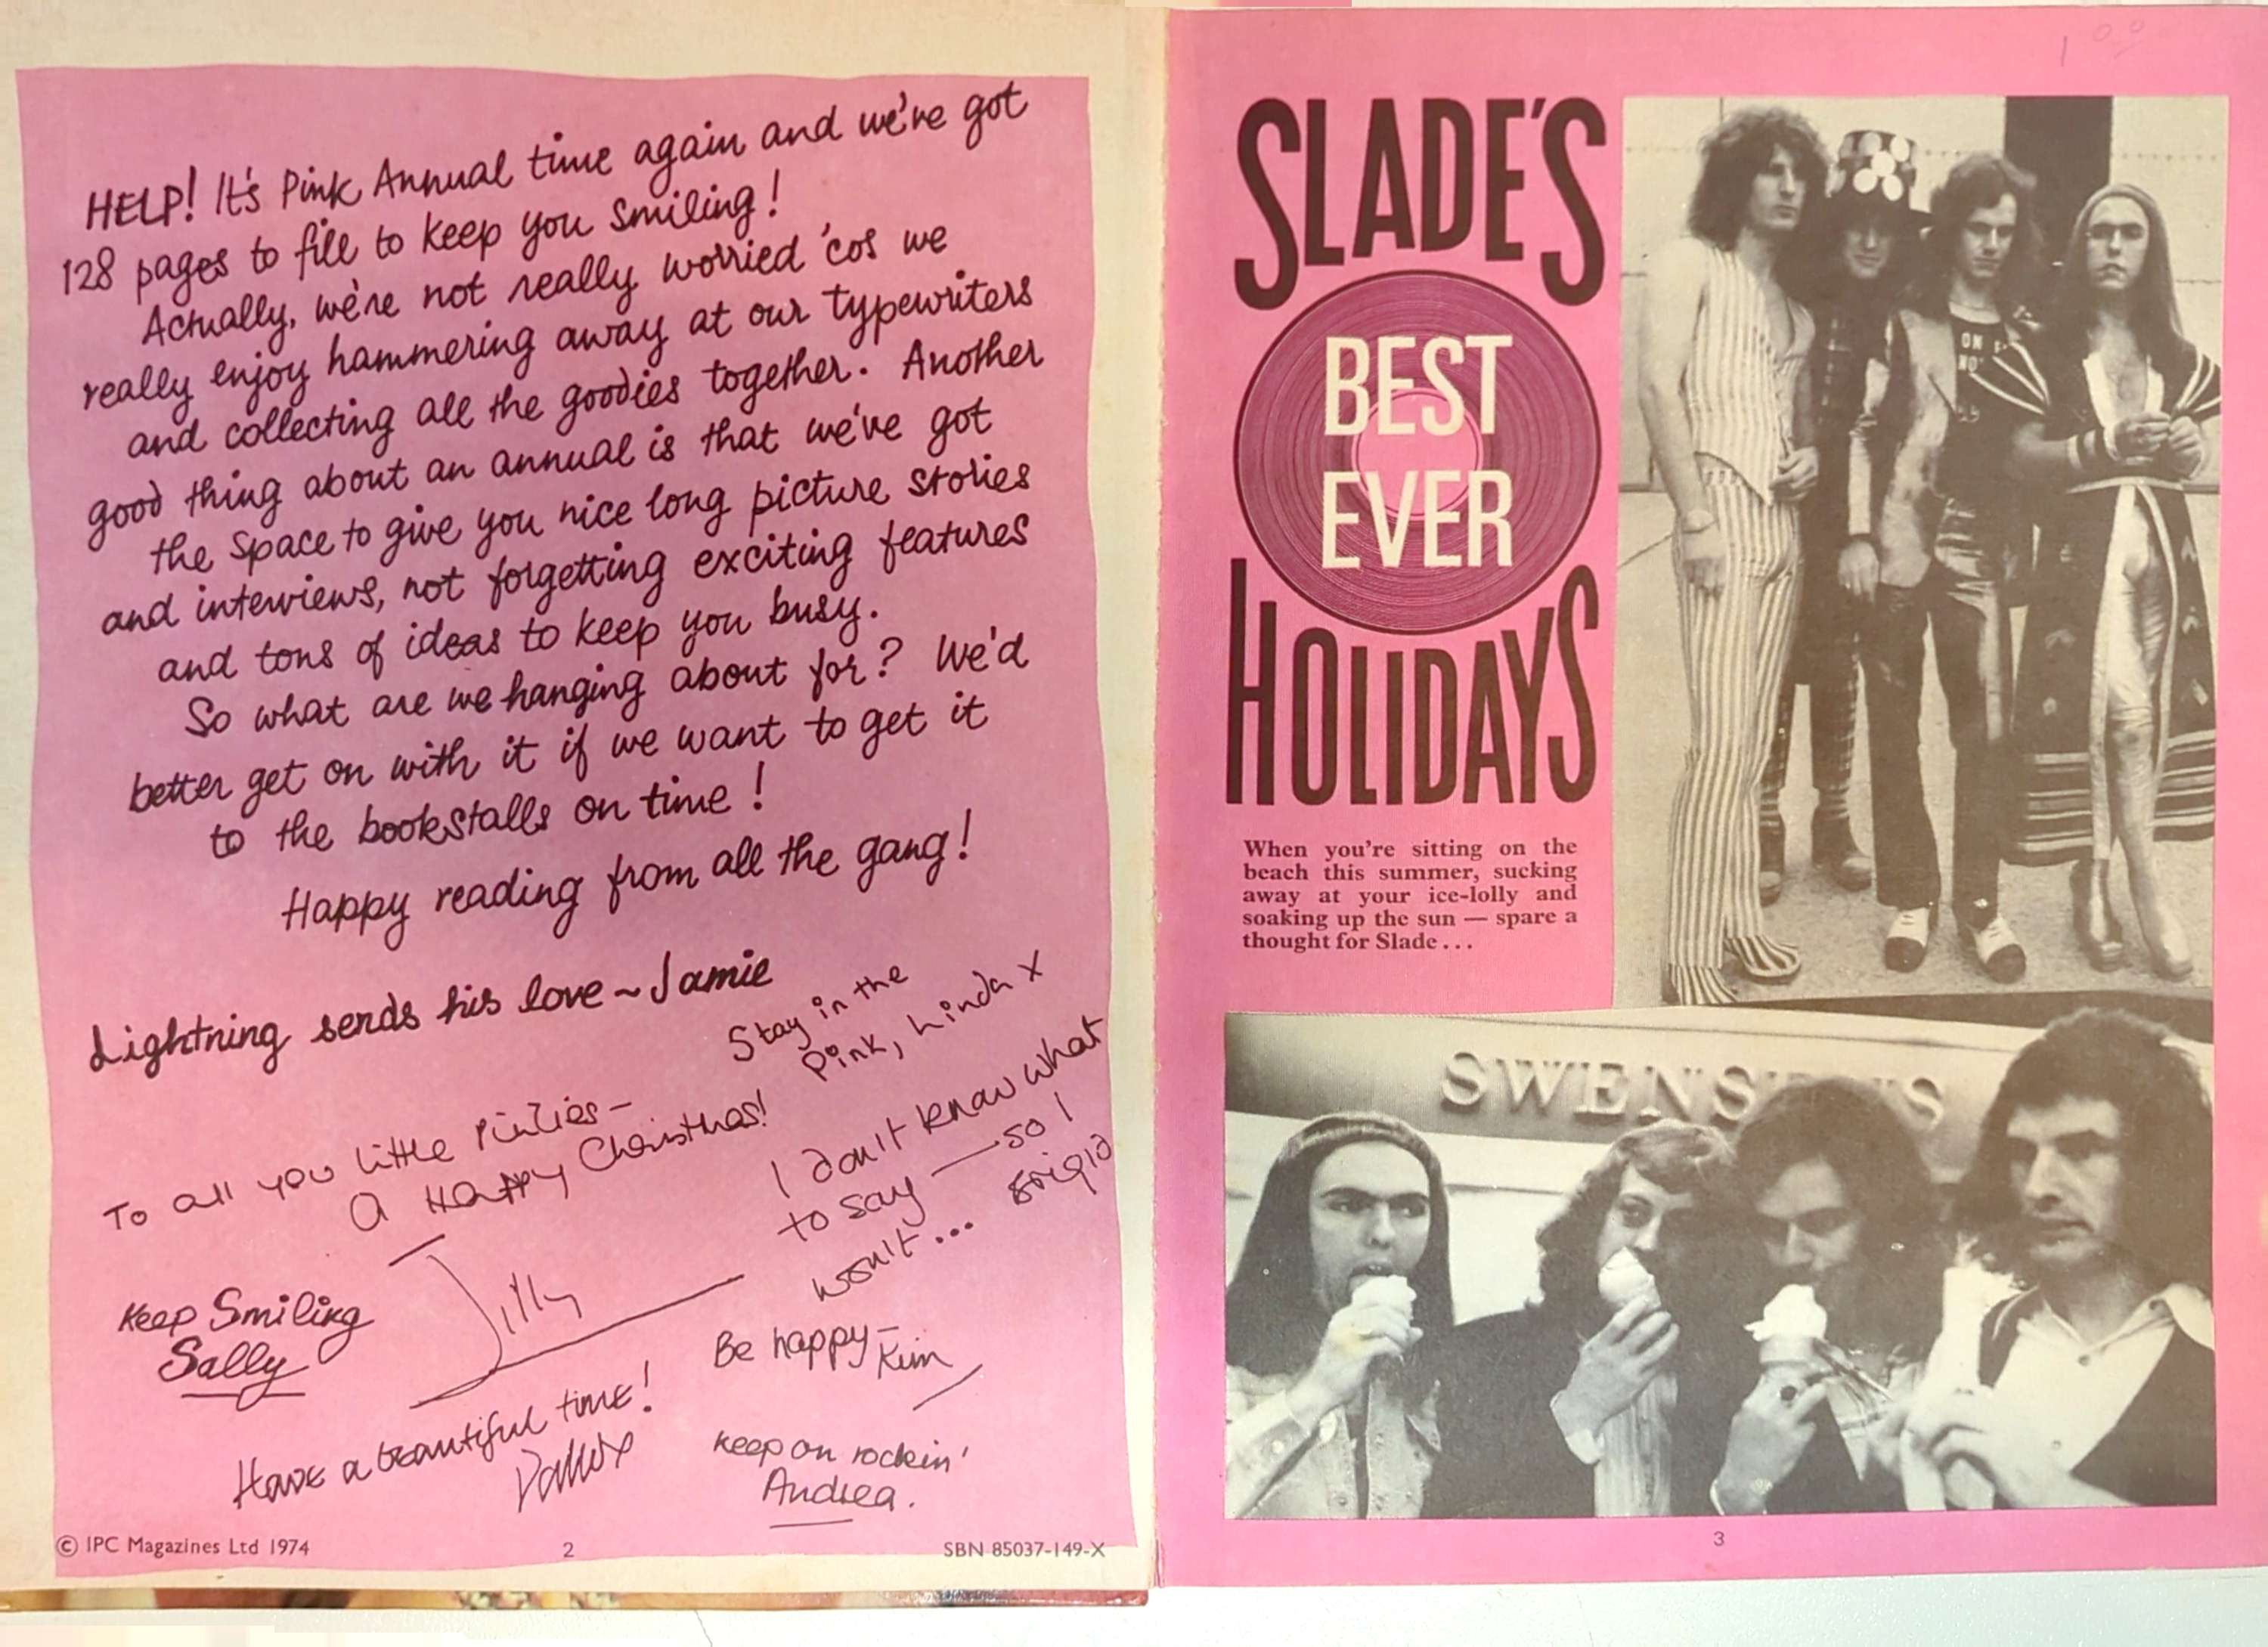 HELP! It's Pink Annual time again and we've got
128 pages to fill to keep you smiling!
Actually, we're not really worried 'cos we
really enjoy hammering away at our typewriters
and collecting all the goodies together. Another
good thing about an annual is that we've got
the space to give you nice long picture stories
and interviews, not forgetting exciting features
and tons of ideas to keep you busy.
So what are we hanging about for? We'd
better get on with it if we want to get it
to the bookstalls on time!
Happy reading from all the gang!
Lightning sends his love ~ Jamie
Stay in the
Pink, Linda x
To all you little Pinkies-
A Happy Christmas!
Jilly
I don't know what
to say — so I
won't...
Keep Smiling
Sally
Be happy-
Kim
Have a beautiful time!
keep on rockin'
Andrea.
© IPC Magazines Ltd 1974
2
SBN 85037-149-X
SLADE'S
BEST
EVER
HOLIDAYS
When you're sitting on the
beach this summer, sucking
away at your ice-lolly and
soaking up the sun — spare a
thought for Slade...
ON
NO
3